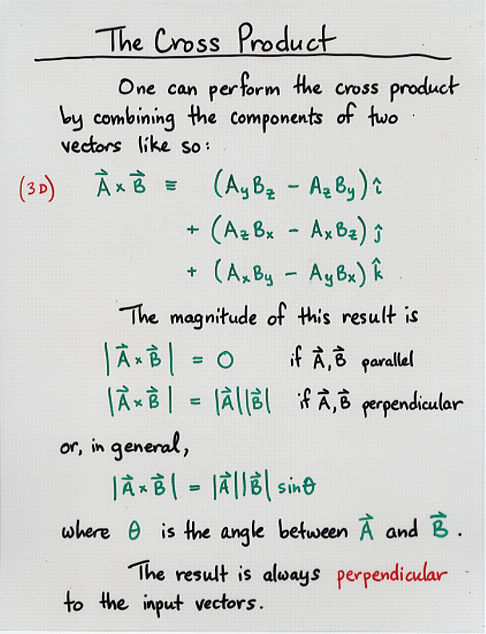 The Cross Product
One can perform the cross product
by combining the components of two
vectors like so:
(3D) A⃗ × B⃗ ≡ (AyBz − AzBy) î
+ (AzBx − AxBz) ĵ
+ (AxBy − AyBx) k̂
The magnitude of this result is
|A⃗ × B⃗| = 0 if A⃗, B⃗ parallel
|A⃗ × B⃗| = |A⃗||B⃗| if A⃗, B⃗ perpendicular
or, in general,
|A⃗ × B⃗| = |A⃗||B⃗| sinθ
where θ is the angle between A⃗ and B⃗.
The result is always perpendicular
to the input vectors.